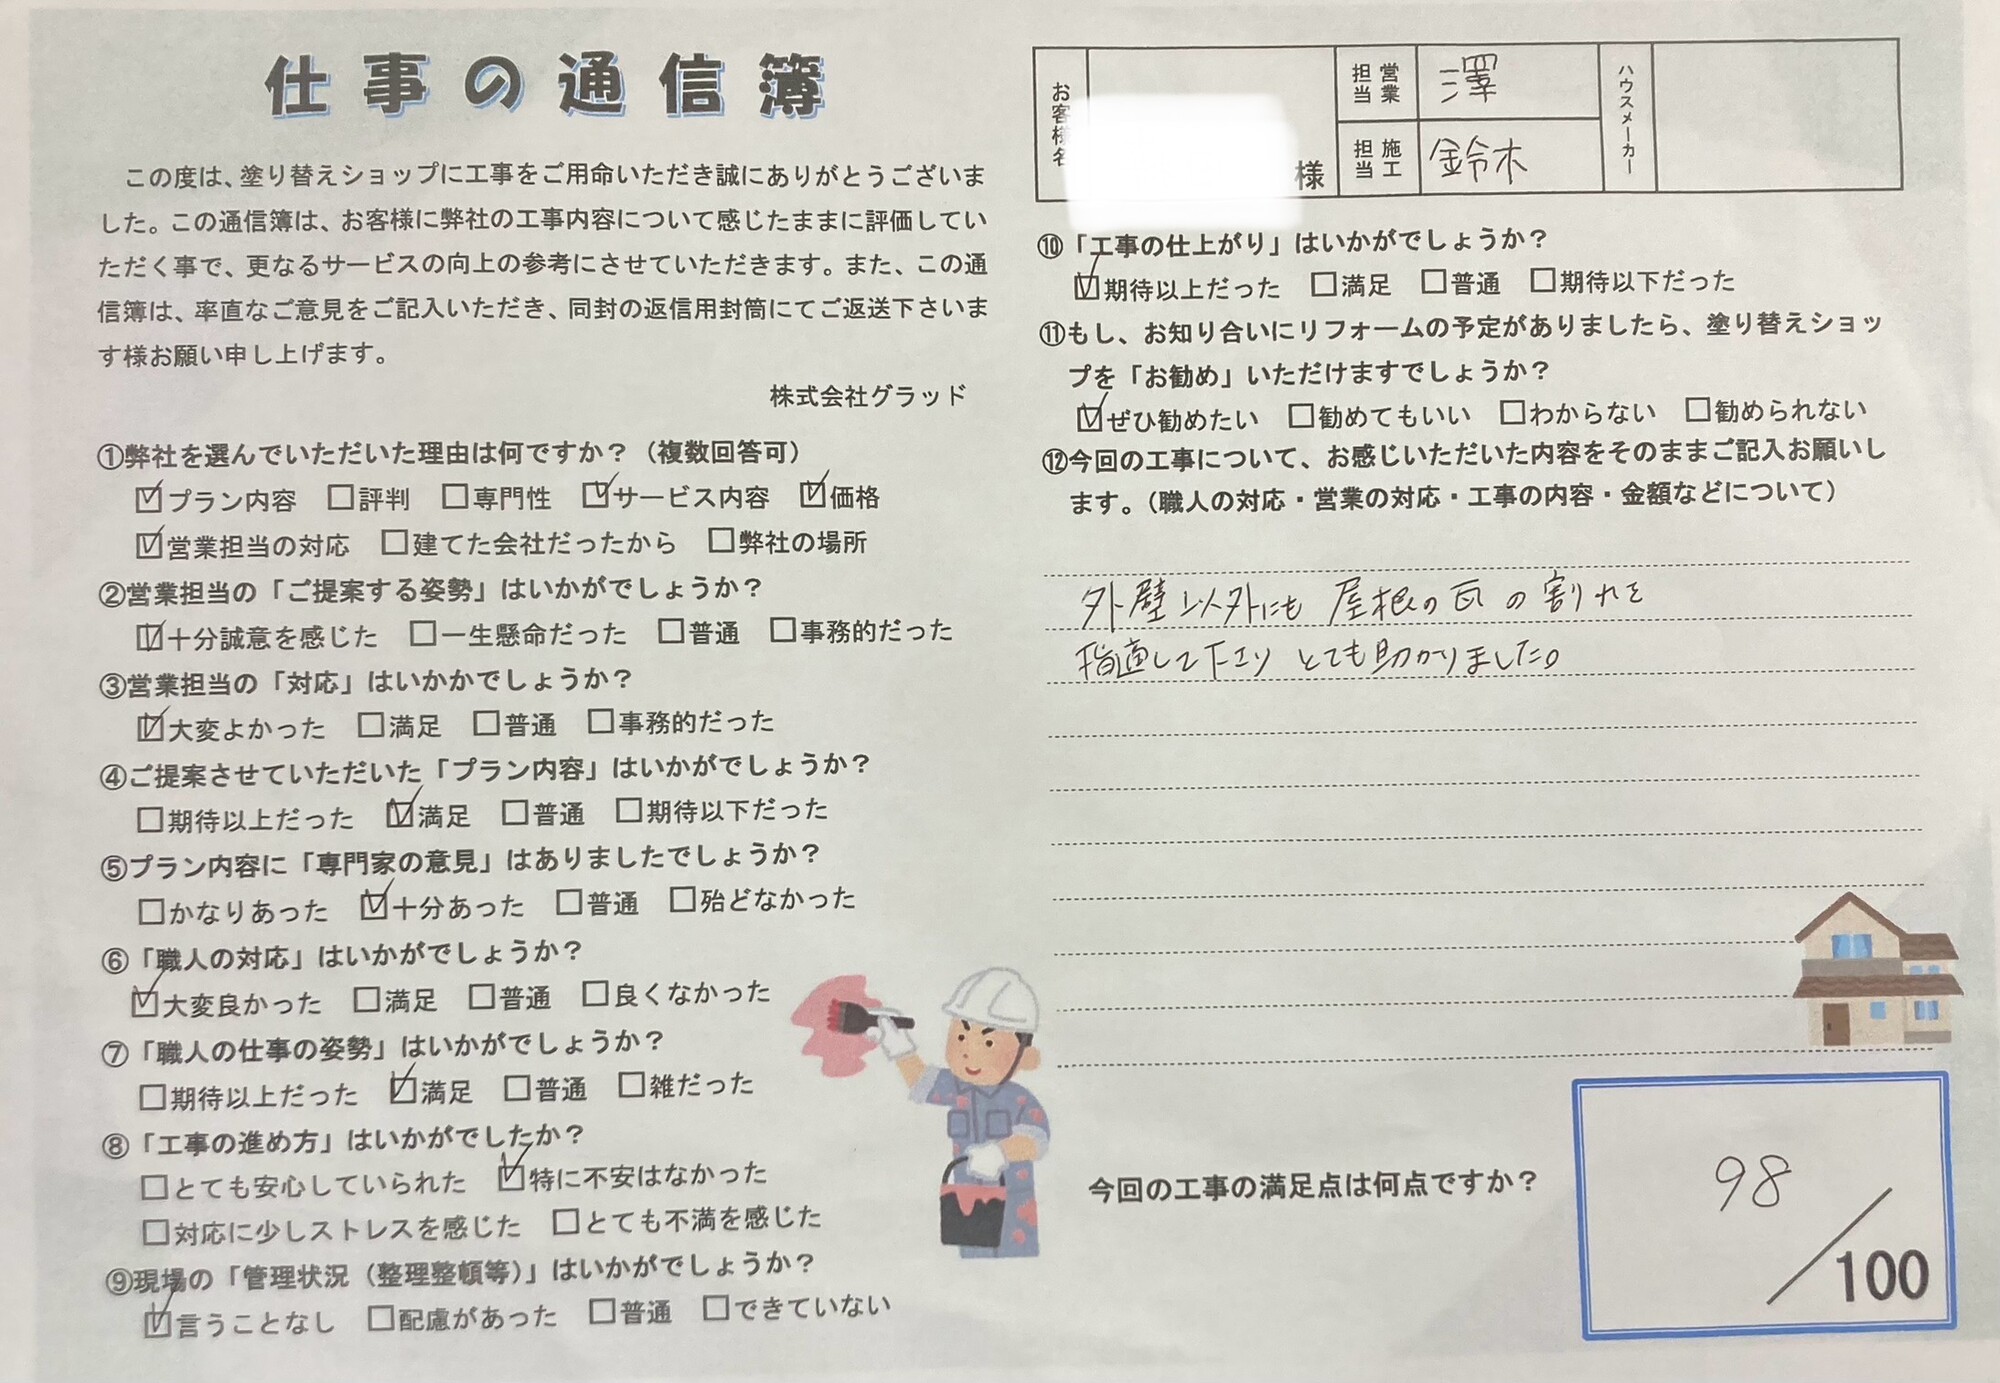 仕事の通信簿
この度は、塗り替えショップに工事をご用命いただき誠にありがとうございま
した。この通信簿は、お客様に弊社の工事内容について感じたままに評価してい
ただく事で、更なるサービスの向上の参考にさせていただきます。また、この通
信簿は、率直なご意見をご記入いただき、同封の返信用封筒にてご返送下さいま
す様お願い申し上げます。
株式会社グラッド
①弊社を選んでいただいた理由は何ですか？（複数回答可）
☑プラン内容 □評判 □専門性 ☑サービス内容 ☑価格
☑営業担当の対応 □建てた会社だったから □弊社の場所
②営業担当の「ご提案する姿勢」はいかがでしょうか？
☑十分誠意を感じた □一生懸命だった □普通 □事務的だった
③営業担当の「対応」はいかかでしょうか？
☑大変よかった □満足 □普通 □事務的だった
④ご提案させていただいた「プラン内容」はいかがでしょうか？
□期待以上だった ☑満足 □普通 □期待以下だった
⑤プラン内容に「専門家の意見」はありましたでしょうか？
□かなりあった ☑十分あった □普通 □殆どなかった
⑥「職人の対応」はいかがでしょうか？
☑大変良かった □満足 □普通 □良くなかった
⑦「職人の仕事の姿勢」はいかがでしょうか？
□期待以上だった ☑満足 □普通 □雑だった
⑧「工事の進め方」はいかがでしたか？
□とても安心していられた ☑特に不安はなかった
□対応に少しストレスを感じた □とても不満を感じた
⑨現場の「管理状況（整理整頓等）」はいかがでしょうか？
☑言うことなし □配慮があった □普通 □できていない
お客様名 様 営業担当 澤 ハウスメーカー
施工担当 鈴木
⑩「工事の仕上がり」はいかがでしょうか？
☑期待以上だった □満足 □普通 □期待以下だった
⑪もし、お知り合いにリフォームの予定がありましたら、塗り替えショッ
プを「お勧め」いただけますでしょうか？
☑ぜひ勧めたい □勧めてもいい □わからない □勧められない
⑫今回の工事について、お感じいただいた内容をそのままご記入お願いし
ます。（職人の対応・営業の対応・工事の内容・金額などについて）
外壁以外にも 屋根の瓦の割れを
指適して下さり とても助かりました。
今回の工事の満足点は何点ですか？
98
/100